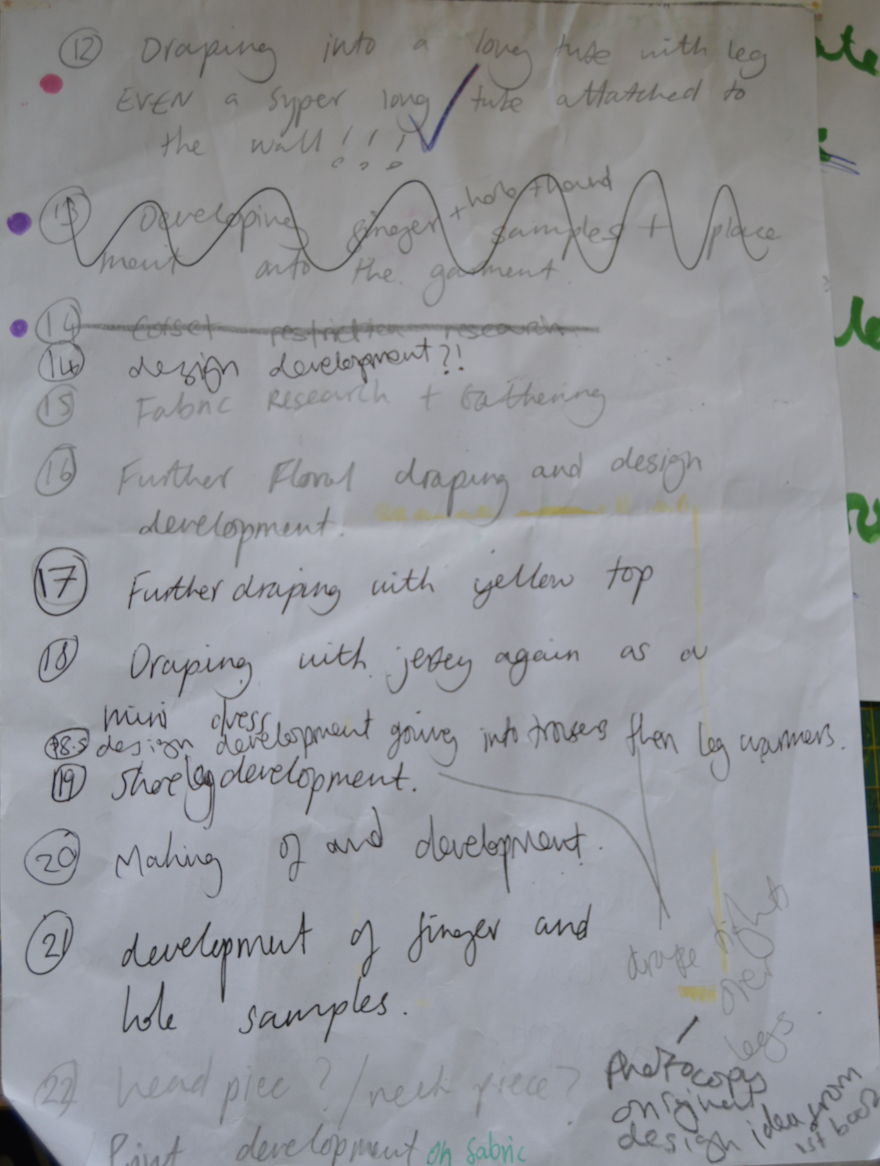 12 Draping into a long tube with leg
EVEN a syper long tube attatched to
the wall!!!
13 Developing finger + hole + hand samples + place
ment onto the garment
14 Corset restriction research
14 design development?!
15 Fabric Research + Gathering
16 Further Floral draping and design
development.
17 Further draping with yellow top
18 Draping with jersey again as a
mini dress
18.5 design development going into trousers then leg warmers.
19 Shoe leg development.
20 Making of and development.
21 development of finger and
hole samples.
drape tights
over
legs.
22 head piec? / neck piece?
Photocopy
original
design idea from
1st book
Print development on fabric